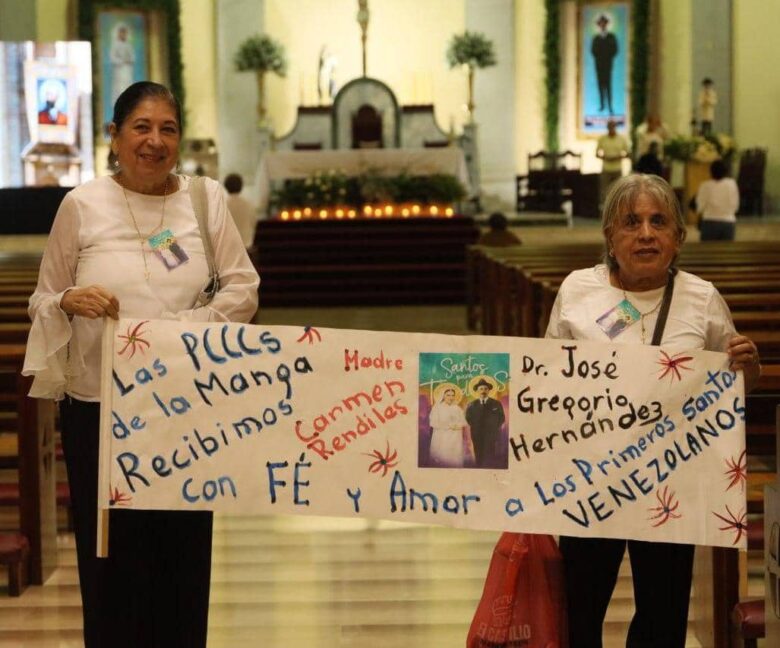 Las PCCCs
de la Manga
Recibimos
con FÉ y Amor a Los Primeros Santos
VENEZOLANOS
Madre
Carmen
Rendiles
Santos
para
Todos
Dr. José
Gregorio
Hernández